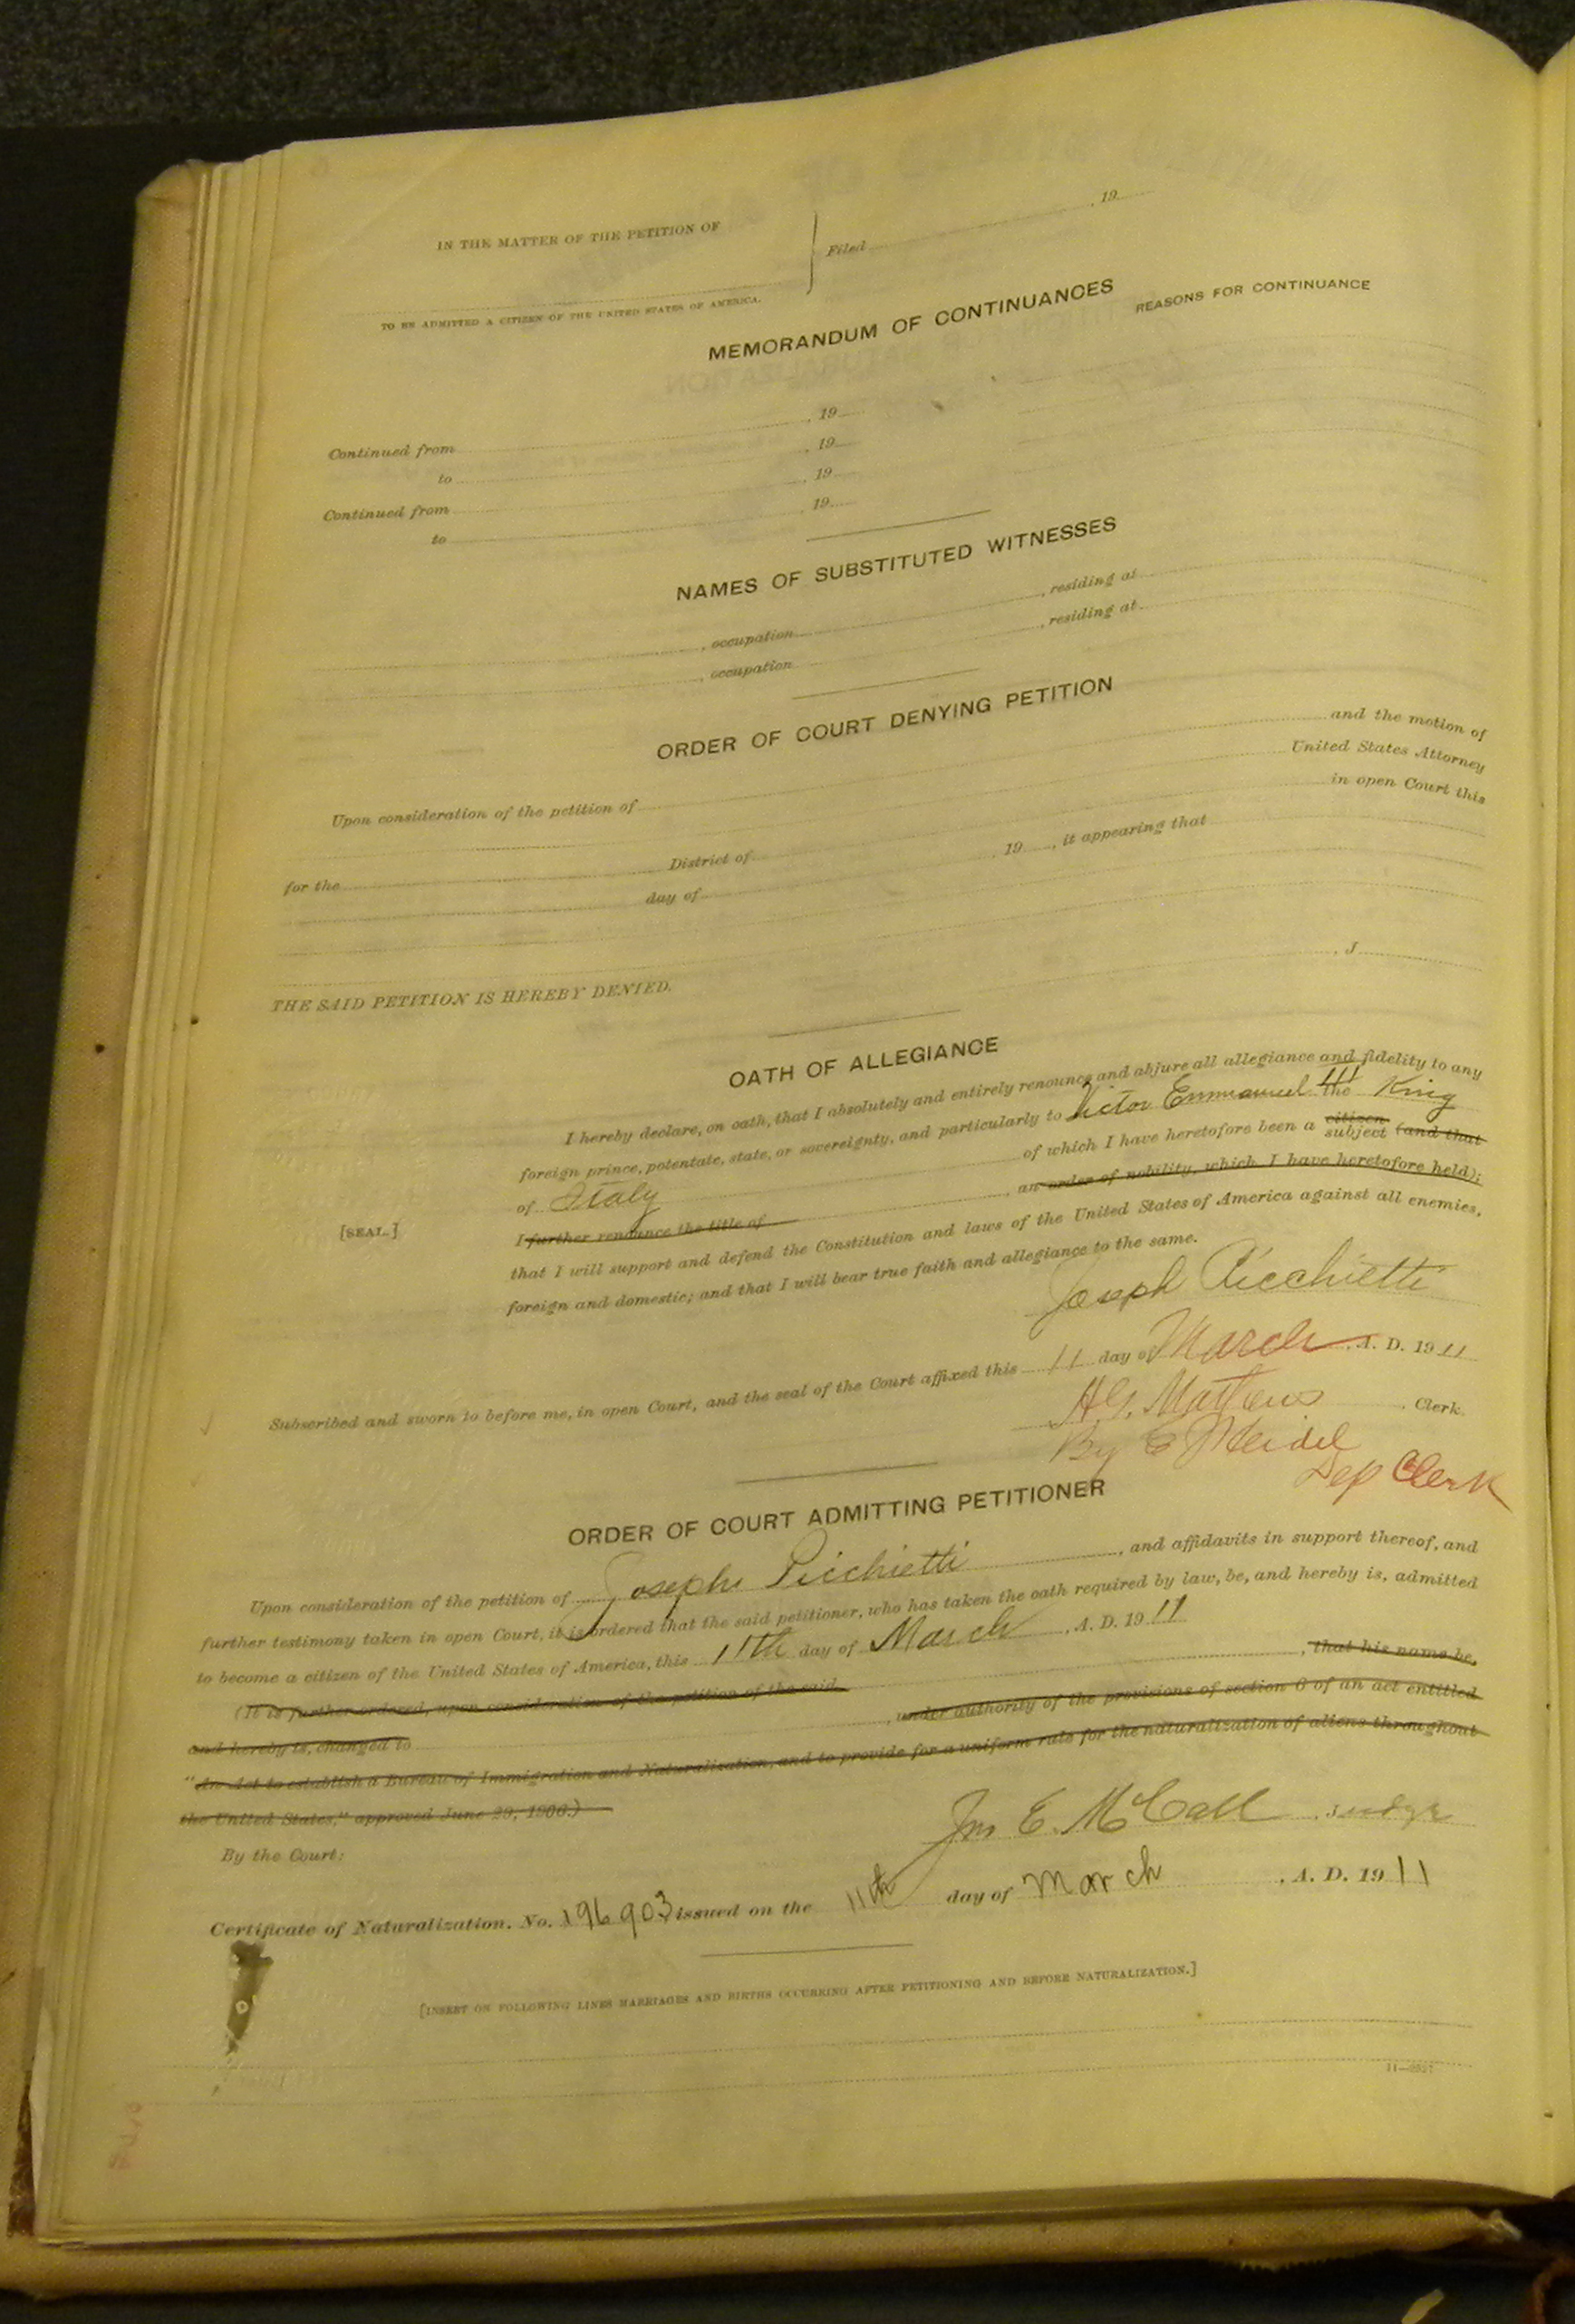 IN THE MATTER OF THE PETITION OF
Filed , 19
TO BE ADMITTED A CITIZEN OF THE UNITED STATES OF AMERICA.
MEMORANDUM OF CONTINUANCES
REASONS FOR CONTINUANCE
Continued from , 19
to , 19
Continued from , 19
to , 19
NAMES OF SUBSTITUTED WITNESSES
, occupation , residing at
, occupation , residing at
ORDER OF COURT DENYING PETITION
Upon consideration of the petition of and the motion of
United States Attorney
for the District of in open Court this
day of , 19 , it appearing that
THE SAID PETITION IS HEREBY DENIED.
, J
OATH OF ALLEGIANCE
I hereby declare, on oath, that I absolutely and entirely renounce and abjure all allegiance and fidelity to any
foreign prince, potentate, state, or sovereignty, and particularly to Victor Emmanuel III the King
of Italy of which I have heretofore been a citizen subject (and that
I further renounce the title of , an order of nobility, which I have heretofore held);
that I will support and defend the Constitution and laws of the United States of America against all enemies,
foreign and domestic; and that I will bear true faith and allegiance to the same.
[SEAL.]
Joseph Picchietti
Subscribed and sworn to before me, in open Court, and the seal of the Court affixed this 11 day of March , A. D. 19 11
, Clerk.
By
Dep Clerk
ORDER OF COURT ADMITTING PETITIONER
Upon consideration of the petition of Joseph Picchietti , and affidavits in support thereof, and
further testimony taken in open Court, it is ordered that the said petitioner, who has taken the oath required by law, be, and hereby is, admitted
to become a citizen of the United States of America, this 11th day of March , A. D. 19 11
(It is further ordered, upon consideration of the petition of the said , that his name be,
and hereby is, changed to , under authority of the provisions of section 6 of an act entitled
"An Act to establish a Bureau of Immigration and Naturalization, and to provide for a uniform rule for the naturalization of aliens throughout
the United States," approved June 29, 1906.)
By the Court:
Jno E. McCall , Judge
Certificate of Naturalization. No. 196903 issued on the 11th day of March , A. D. 19 11
[INSERT ON FOLLOWING LINES MARRIAGES AND BIRTHS OCCURRING AFTER PETITIONING AND BEFORE NATURALIZATION.]